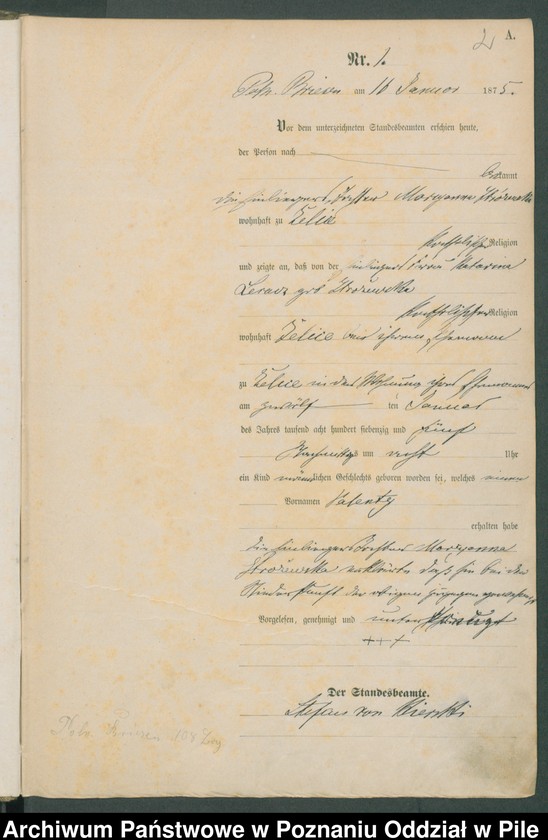 2 A.
Nr. 1.
am 16 Januar 1875.
Vor dem unterzeichneten Standesbeamten erschien heute,
der Person nach
bekannt
die Einliegers Tochter Maryanna
wohnhaft zu Zelice
katholischer Religion
und zeigte an, daß von der Einliegers Frau Katarina
geb
katholischer Religion
wohnhaft Zelice bei ihrem Ehemanne
zu Zelice in der Wohnung ihres Ehemannes
am zwölf ten Januar
des Jahres tausend acht hundert siebenzig und fünf
Nachmittags um acht Uhr
ein Kind männlichen Geschlechts geboren worden sei, welches einen
Vornamen Valenty
erhalten habe
die Einliegers Tochter Maryanna
erklärte daß sie bei der
Niederkunft der zugegen gewesen
Vorgelesen, genehmigt und
+++
Der Standesbeamte.
Stefan von
Archiwum Państwowe w Poznaniu Oddział w Pile